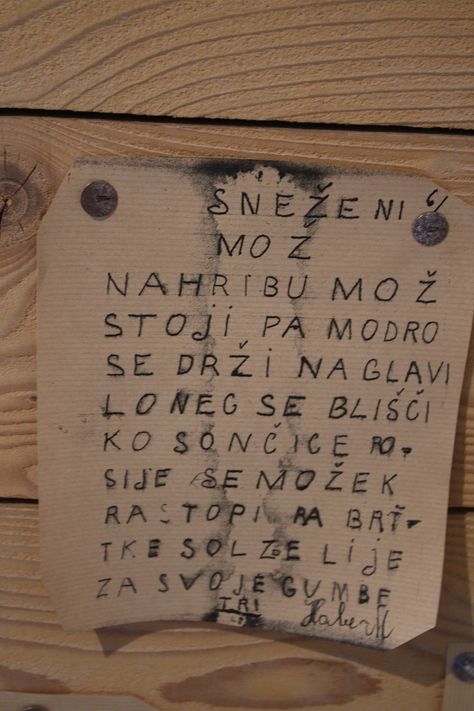 SNEŽENI
MOŽ
NAHRIBU MOŽ
STOJI PA MODRO
SE DRŽI NA GLAVI
LONEC SE BLIŠČI
KO SONČICE PO-
SIJE SE MOŽEK
RASTOPI PA BRT-
TKE SOLZE LIJE
ZA SVOJE GUMBE
TRI